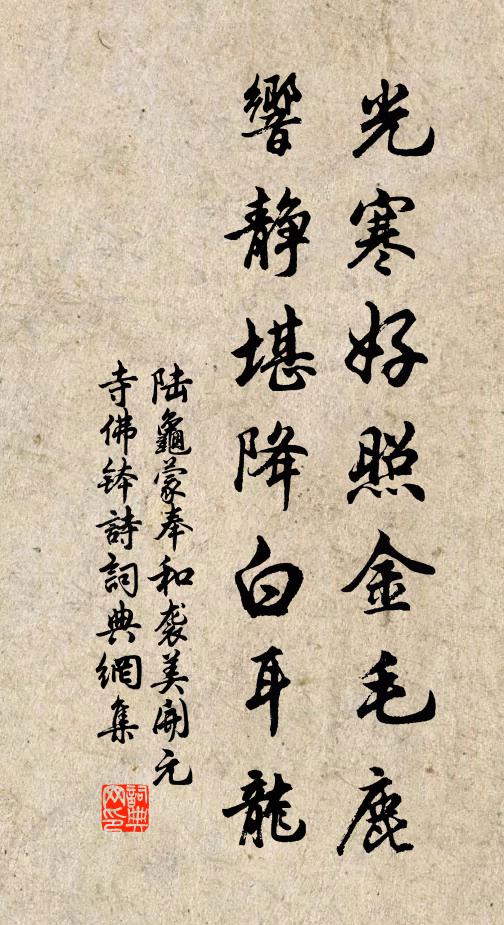 光寒好照金毛鹿
響靜堪降白耳龍
陆龜蒙奉和袭美開元
寺佛鉢詩詞典網集
詞典網印